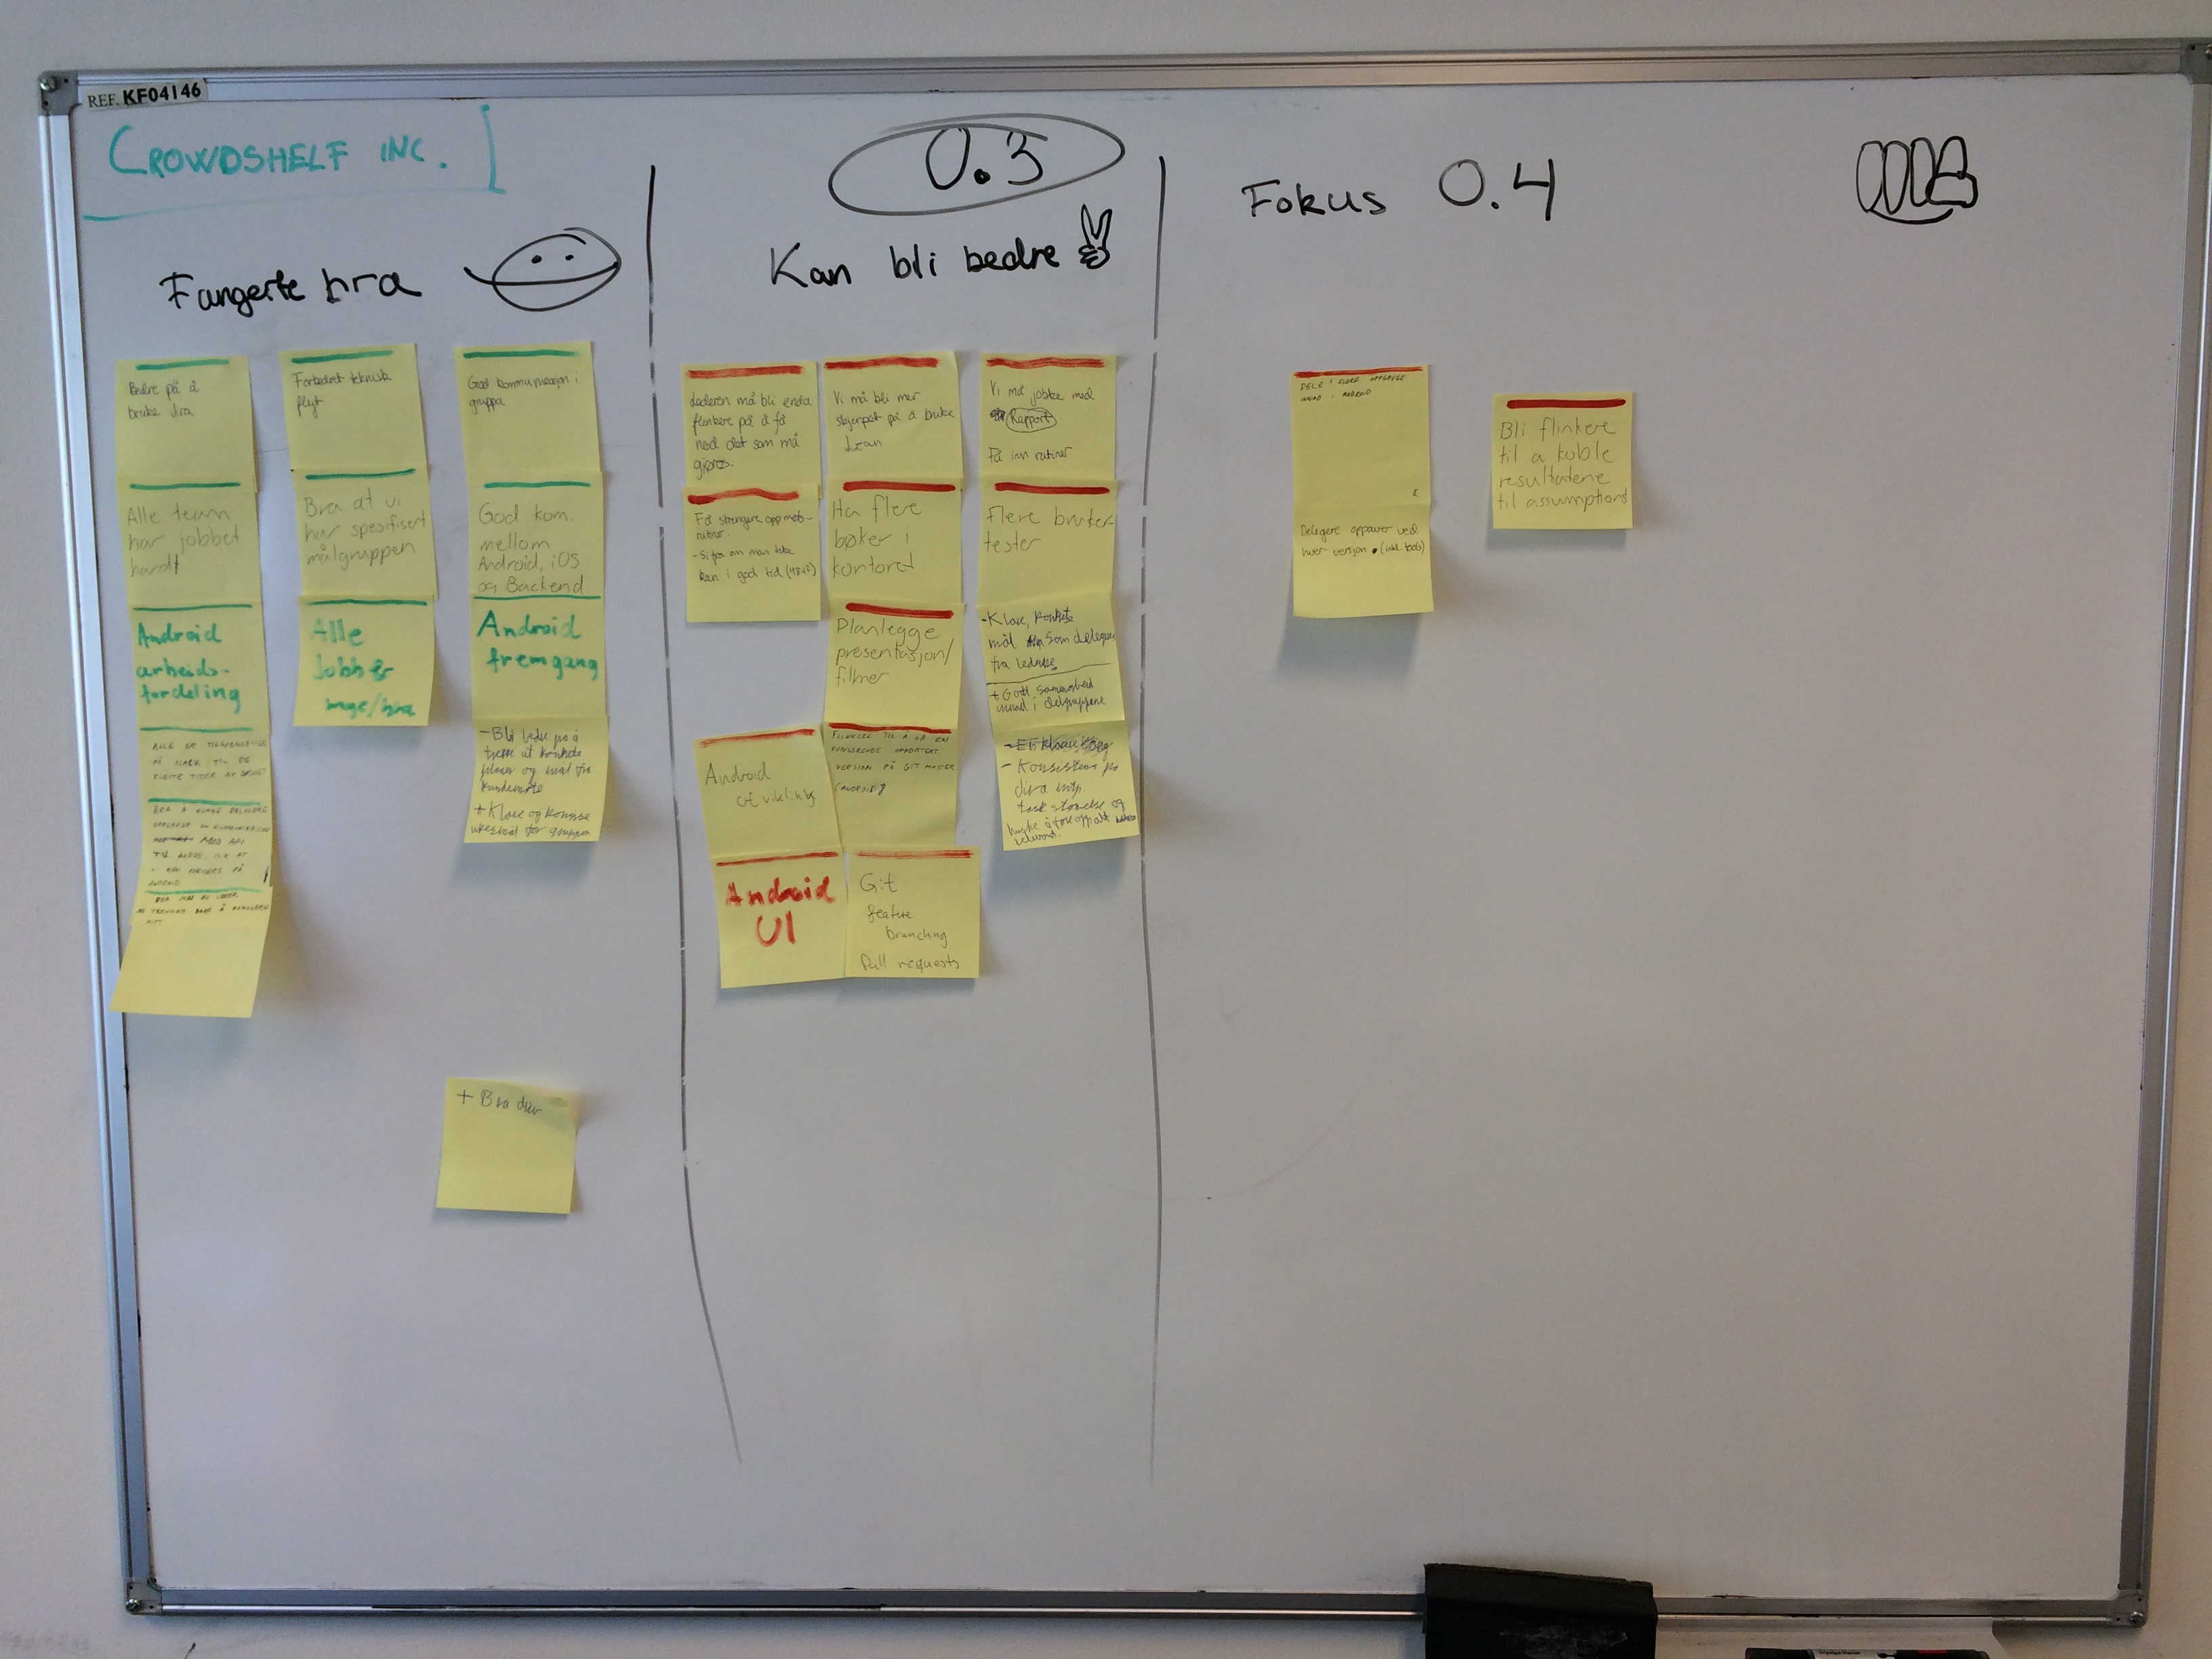 REF. KF04146
CROWDSHELF INC.
0.3
Fokus 0.4
Fungerte bra
Kan bli bedre
Bedre på å
bruke Jira
Alle team
har jobbet
hardt
Android
arbeids-
fordeling
ALLE ER TILGJENGELIGE
PÅ SLACK TIL DE
FLESTE TIDER AV DØGNET
BRA Å KUNNE DELEGERE
OPPGAVER
MOD API
TIL
PÅ
BRA JOBB AV LEDER
BARE Å
Forbedret teknisk
flyt
Bra at vi
har spesifisert
målgruppen
Alle
Jobber
mye/bra
God kommunikasjon i
gruppa
God kom.
mellom
Android, iOS
og Backend
Android
fremgang
- Bli bedre på å
trekke ut konkrete
planer og mål fra
kundemøte
+ Klare og konsise
ukesmål for gruppen
+ Bra driv
Lederen må bli enda
flinkere på å få
ned det som må
gjøres.
Få strengere oppmøte-
rutiner.
- Si fra om man ikke
kan i god tid
Android
utvikling
Android
UI
Vi må bli mer
skjerpet på å bruke
Lean
Ha flere
bøker i
kontoret
Planlegge
presentasjon/
filmer
FLINKERE TIL Å HA EN
FUNGERENDE OPPDATERT
VERSJON PÅ GIT MASTER
(ANDROID)
Git
feature
branching
Pull requests
Vi må jobbe med
Rapport
Få inn rutiner
Flere bruker-
tester
- Klare, konkrete
mål som delegeres
fra ledelse
+ Godt samarbeid
innad i delgruppene
- Konsistens på
Jira mtp.
task-størrelse og
huske å føre opp alt
relevant.
DELE I FLERE OPPGAVER
INNAD I ANDROID
Delegere oppgaver ved
hver versjon. (inkl. tools)
Bli flinkere
til a koble
resultatene
til assumptions